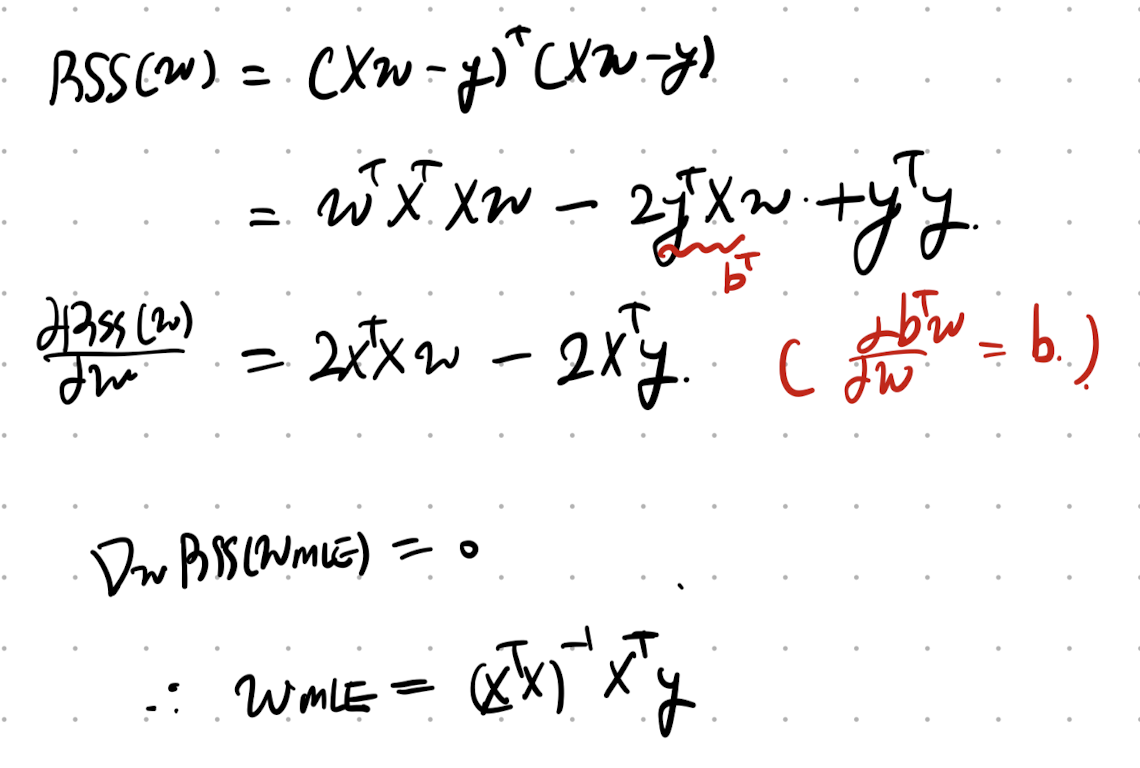 RSS(w) = (Xw - y)ᵀ(Xw - y)
= wᵀXᵀXw - 2yᵀXw + yᵀy.
bᵀ
∂RSS(w)/∂w = 2XᵀXw - 2Xᵀy. ( ∂bᵀw/∂w = b. )
∇w RSS(wMLE) = 0
∴ wMLE = (XᵀX)⁻¹Xᵀy